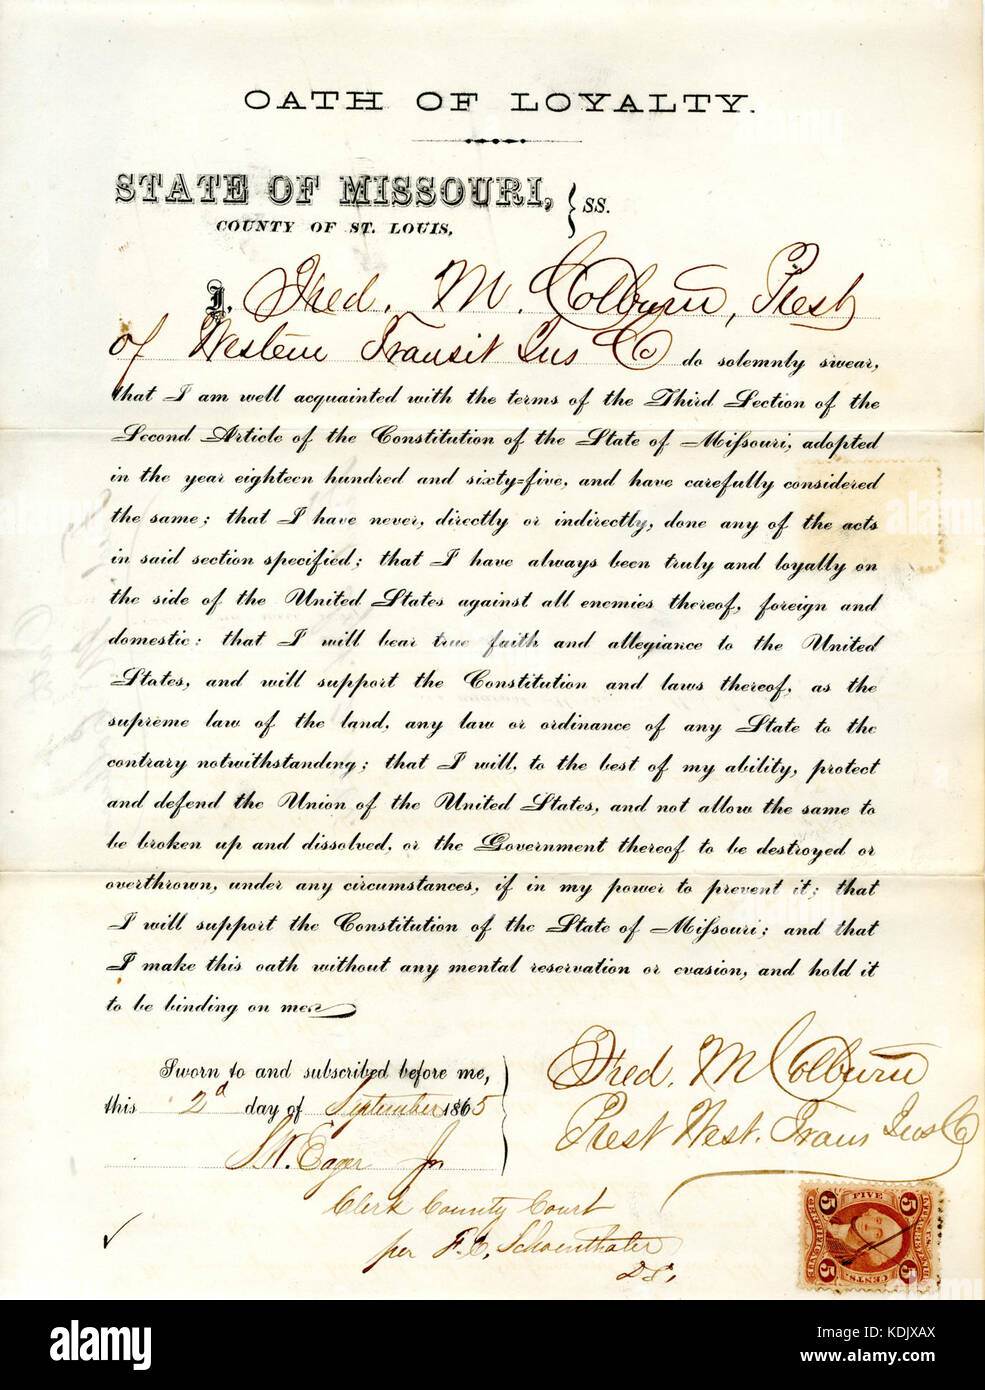 OATH OF LOYALTY.
STATE OF MISSOURI, } SS.
COUNTY OF ST. LOUIS,
I, Fred. M. Colburn, Prest
of Western Transit Ins Co do solemnly swear,
that I am well acquainted with the terms of the Third Section of the
Second Article of the Constitution of the State of Missouri, adopted
in the year eighteen hundred and sixty-five, and have carefully considered
the same; that I have never, directly or indirectly, done any of the acts
in said section specified; that I have always been truly and loyally on
the side of the United States against all enemies thereof, foreign and
domestic: that I will bear true faith and allegiance to the United
States, and will support the Constitution and laws thereof, as the
supreme law of the land, any law or ordinance of any State to the
contrary notwithstanding; that I will, to the best of my ability, protect
and defend the Union of the United States, and not allow the same to
be broken up and dissolved, or the Government thereof to be destroyed or
overthrown, under any circumstances, if in my power to prevent it; that
I will support the Constitution of the State of Missouri; and that
I make this oath without any mental reservation or evasion, and hold it
to be binding on me.
Sworn to and subscribed before me,
this 2d day of September 1865
Eager Jr
Clerk County Court
per F.C. Schoenthaler
Fred. M Colburn
Prest West. Trans Ins Co
FIVE
5 5
U.S. INTER. REVENUE
CERTIFICATE
5 CENTS. 5
alamy
Image ID: KDJXAX
www.alamy.com